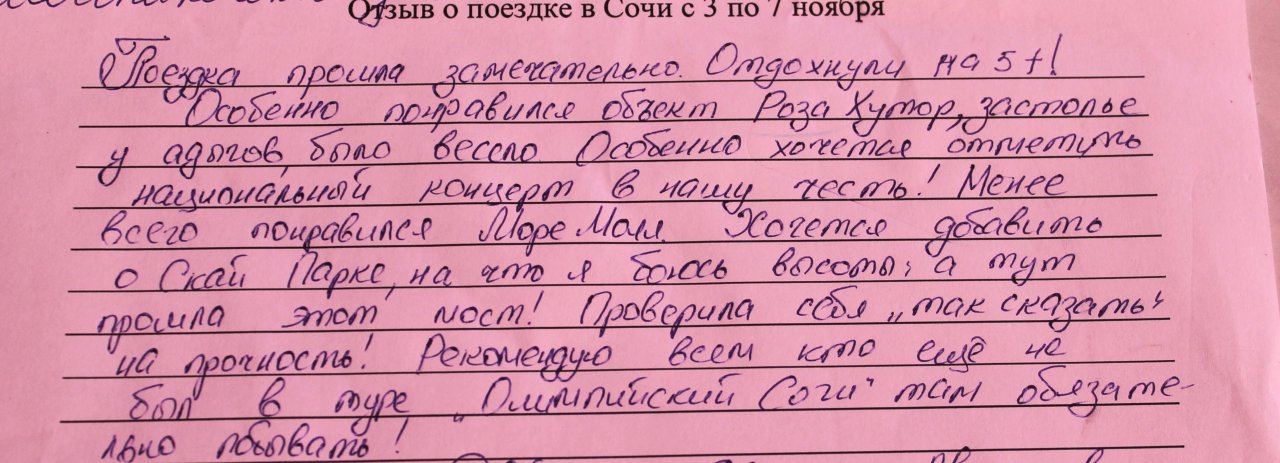 Отзыв о поездке в Сочи с 3 по 7 ноября
Поездка прошла замечательно. Отдохнули на 5+!
Особенно понравился объект Роза Хутор, застолье
у адыгов, было весело. Особенно хочется отметить
национальный концерт в нашу честь! Менее
всего понравился Море Молл. Хочется добавить
о Скай Парке, на что я боюсь высоты, а тут
прошла этот мост! Проверила себя „так сказать"
на прочность! Рекомендую всем кто ещё не
был в туре „Олимпийский Сочи" там обязате-
льно побывать!